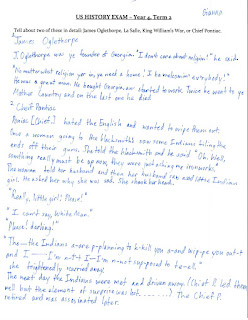 Gianna
US HISTORY EXAM – Year 4, Term 2
Tell about two of these in detail: James Oglethorpe, La Salle, King William's War, or Chief Pontiac.
James Oglethorpe
J. Oglethorpe was ye founder of Georgia. "I don't care about religion!" he said.
"No matter what religion yer in, ye need a home! I be welcomin' everybody!"
He was a great man. He bought Georgia, wanted to work. Twice he went to ye
Mother Country and on the last one he died.
2 Cheif Pontiac
Poniac [Chief.] hated the English and wanted to wipe them out.
Once a woman going to the blacksmiths saw some Indians filing the
ends off their guns. She told the blacksmith and he said "Oh. Well,
something really must be up now, they were just asking me
The woman told her husband and then her husband saw an Indian
girl. He asked her why she was sad. She shook her head.
"Really, little girl! Please!"
"I can't say, White Man."
"Please! darling!"
"The—the Indians a-are p-planning to k-kill you a-and wip-pe you out-t
and I—I'm n-not I—I'm n-not sup-posed to te-ell."
She frightenedly scurried away.
The next day the Indians were met and driven away. (Chief P. led them
well but the element of surprise was lost.........) The Chief P.
retired and was associnated later.